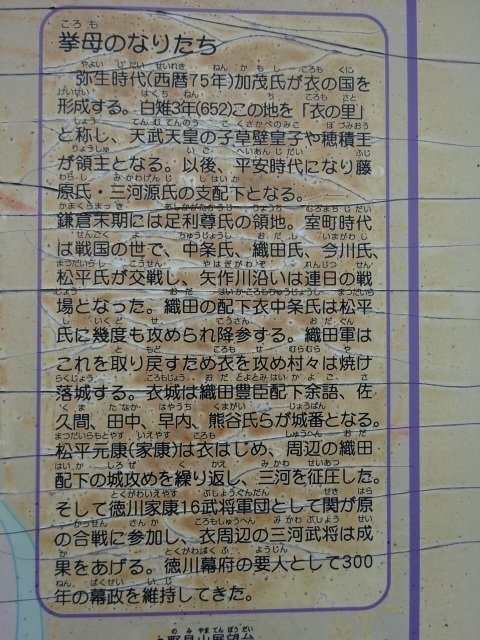 挙母のなりたち
弥生時代(西暦75年)加茂氏が衣の国を
形成する。白雉3年(652)この地を「衣の里」
と称し、天武天皇の子草壁皇子や穂積王
が領主となる。以後、平安時代になり藤
原氏・三河源氏の支配下となる。
鎌倉末期には足利尊氏の領地。室町時代
は戦国の世で、中条氏、織田氏、今川氏、
松平氏が交戦し、矢作川沿いは連日の戦
場となった。織田の配下衣中条氏は松平
氏に幾度も攻められ降参する。織田軍は
これを取り戻すため衣を攻め村々は焼け
落城する。衣城は織田豊臣配下余語、佐
久間、田中、早内、熊谷氏らが城番となる。
松平元康(家康)は衣はじめ、周辺の織田
配下の城攻めを繰り返し、三河を征圧した。
そして徳川家康16武将軍団として関が原
の合戦に参加し、衣周辺の三河武将は成
果をあげる。徳川幕府の要人として300
年の幕政を維持してきた。